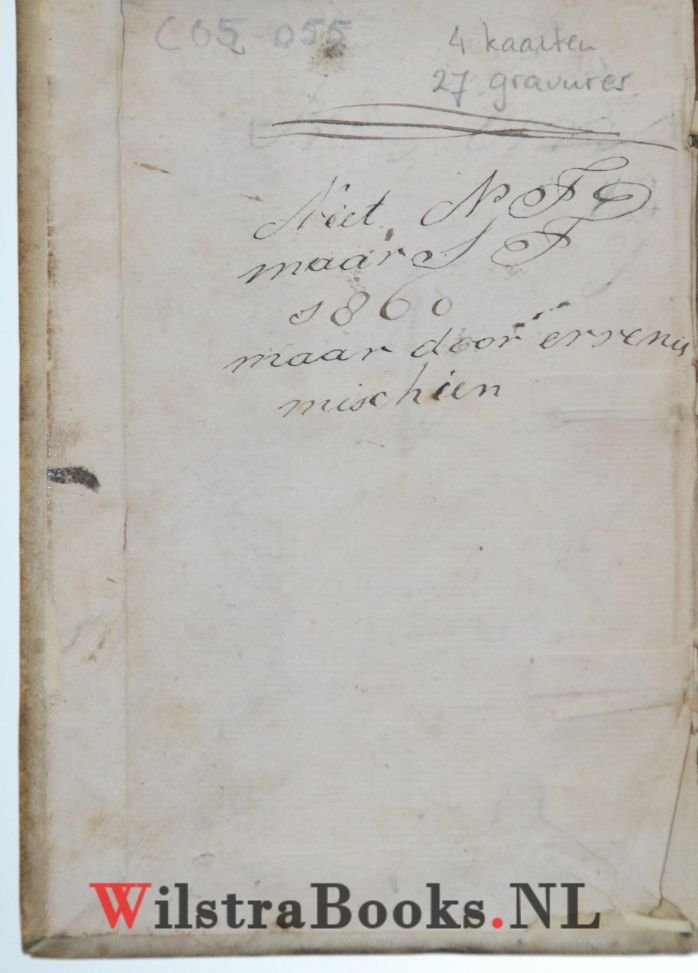 C05 055
4 kaarten
27 gravures
Niet N F
maar S F
1860
maar door errenis
mischien
WilstraBooks.NL